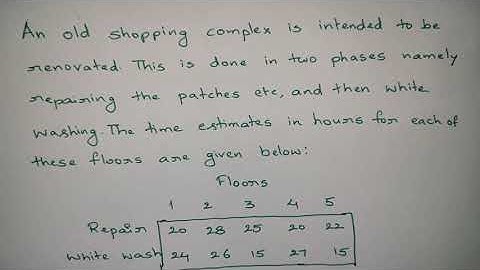 An old shopping complex is intended to be
renovated. This is done in two phases namely
repairing the patches etc, and then white
washing. The time estimates in hours for each of
these floors are given below:
Floors
1 2 3 4 5
Repair 20 28 25 20 22
white wash 24 26 15 27 15